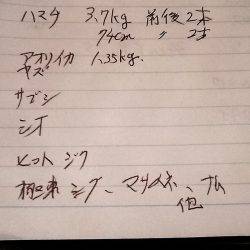 ハマチ 3.7kg 前後 2本
74cm 〃 2本
アオリイカ 1.35kg.
ヤズ
サゴシ
シオ
ヒット ジグ
ジグ、マリメネ、
他